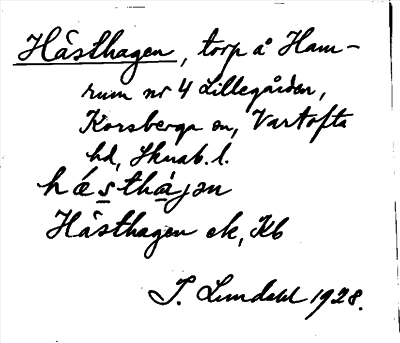 Hästhagen, torp å Ham-
rum nr 4 Lillegården,
Korsberga sn, Vartofta
hd, Skarab. l.
hǽsthàjən
Hästhagen ek, Kb
I. Lundahl 1928.